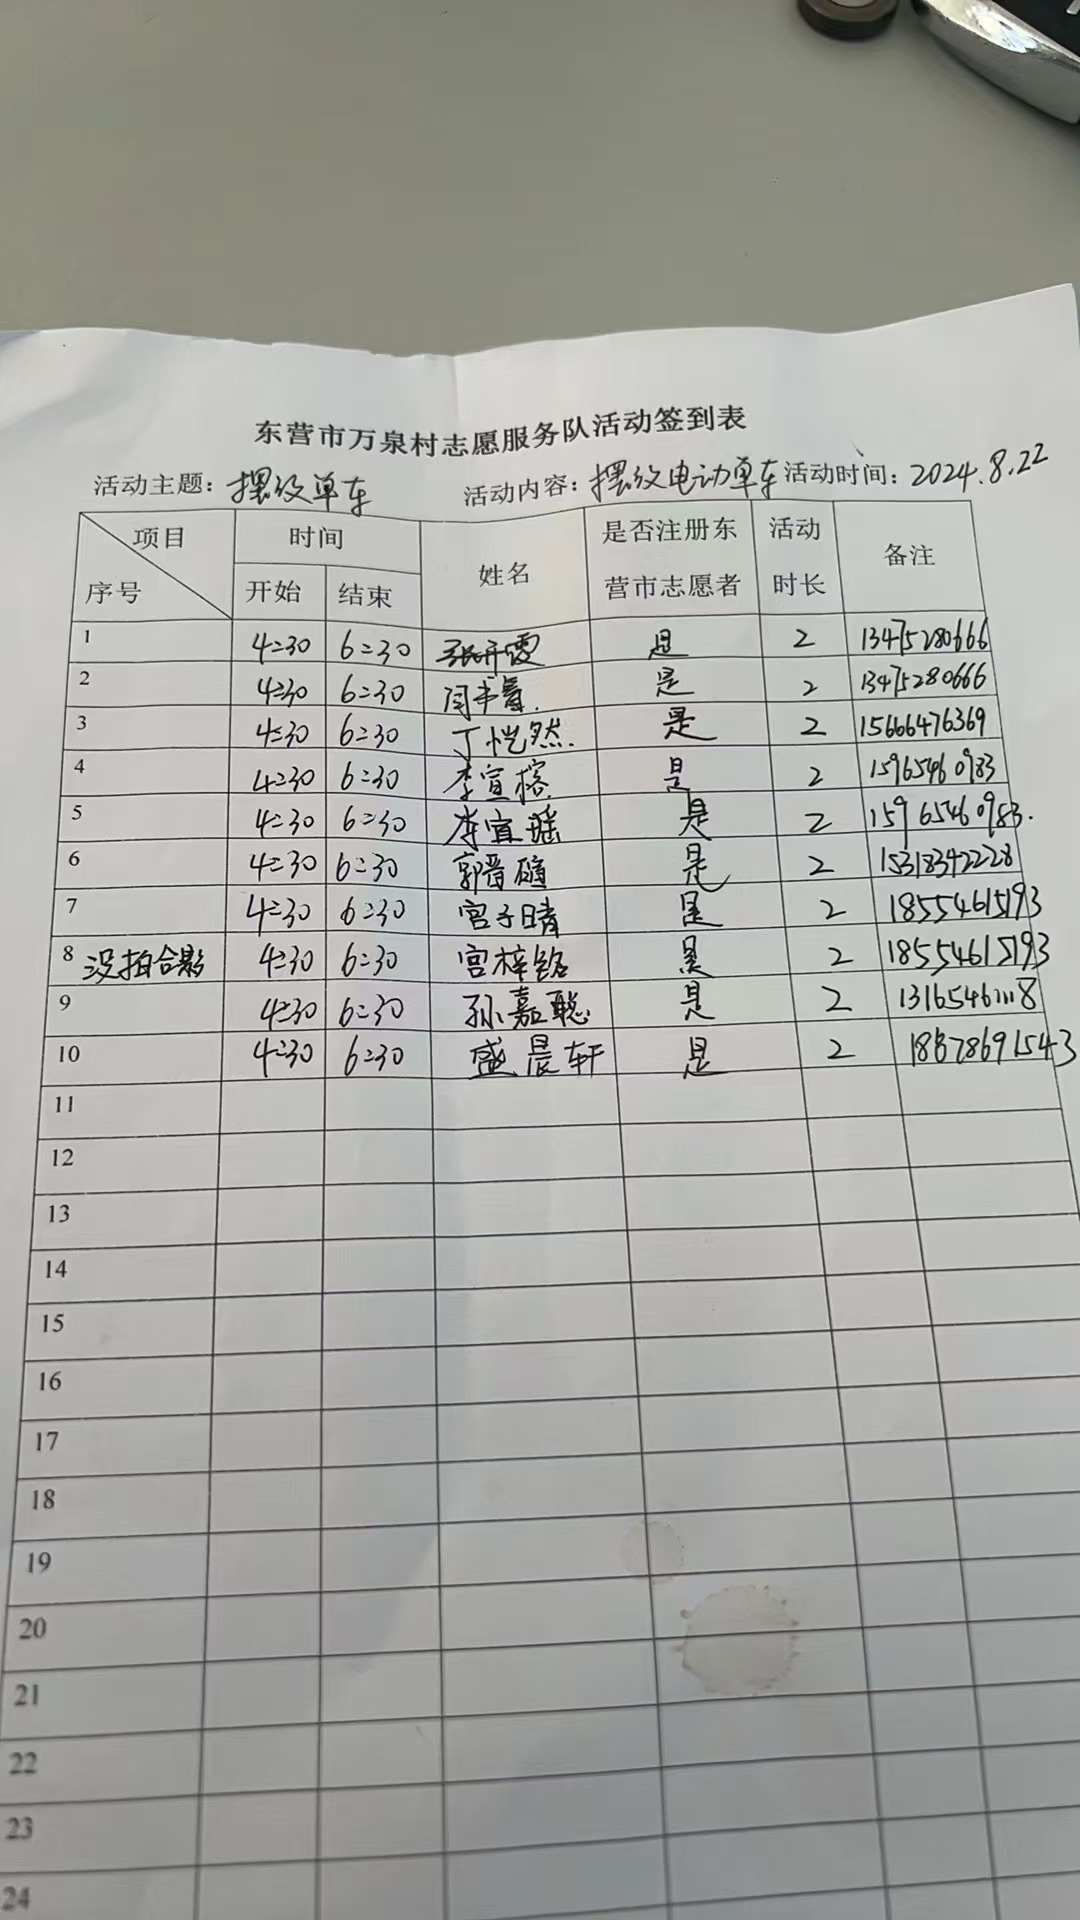 东营市万泉村志愿服务队活动签到表
活动主题：摆放单车 活动内容：摆放电动单车 活动时间：2024.8.22
项目 时间 姓名 是否注册东营市志愿者 活动时长 备注
序号 开始 结束
1 4:30 6:30 是 2 13475280666
2 4:30 6:30 是 2 13475280666
3 4:30 6:30 丁恺然 是 2 15666476369
4 4:30 6:30 李宜榕 是 2 15965460983
5 4:30 6:30 李宜瑶 是 2 15965460983
6 4:30 6:30 郭晋 是 2 15318342228
7 4:30 6:30 宫子晴 是 2 18554615193
8 没拍合影 4:30 6:30 宫梓铭 是 2 18554615193
9 4:30 6:30 孙嘉聪 是 2
10 4:30 6:30 盛晨轩 是 2
11
12
13
14
15
16
17
18
19
20
21
22
23
24